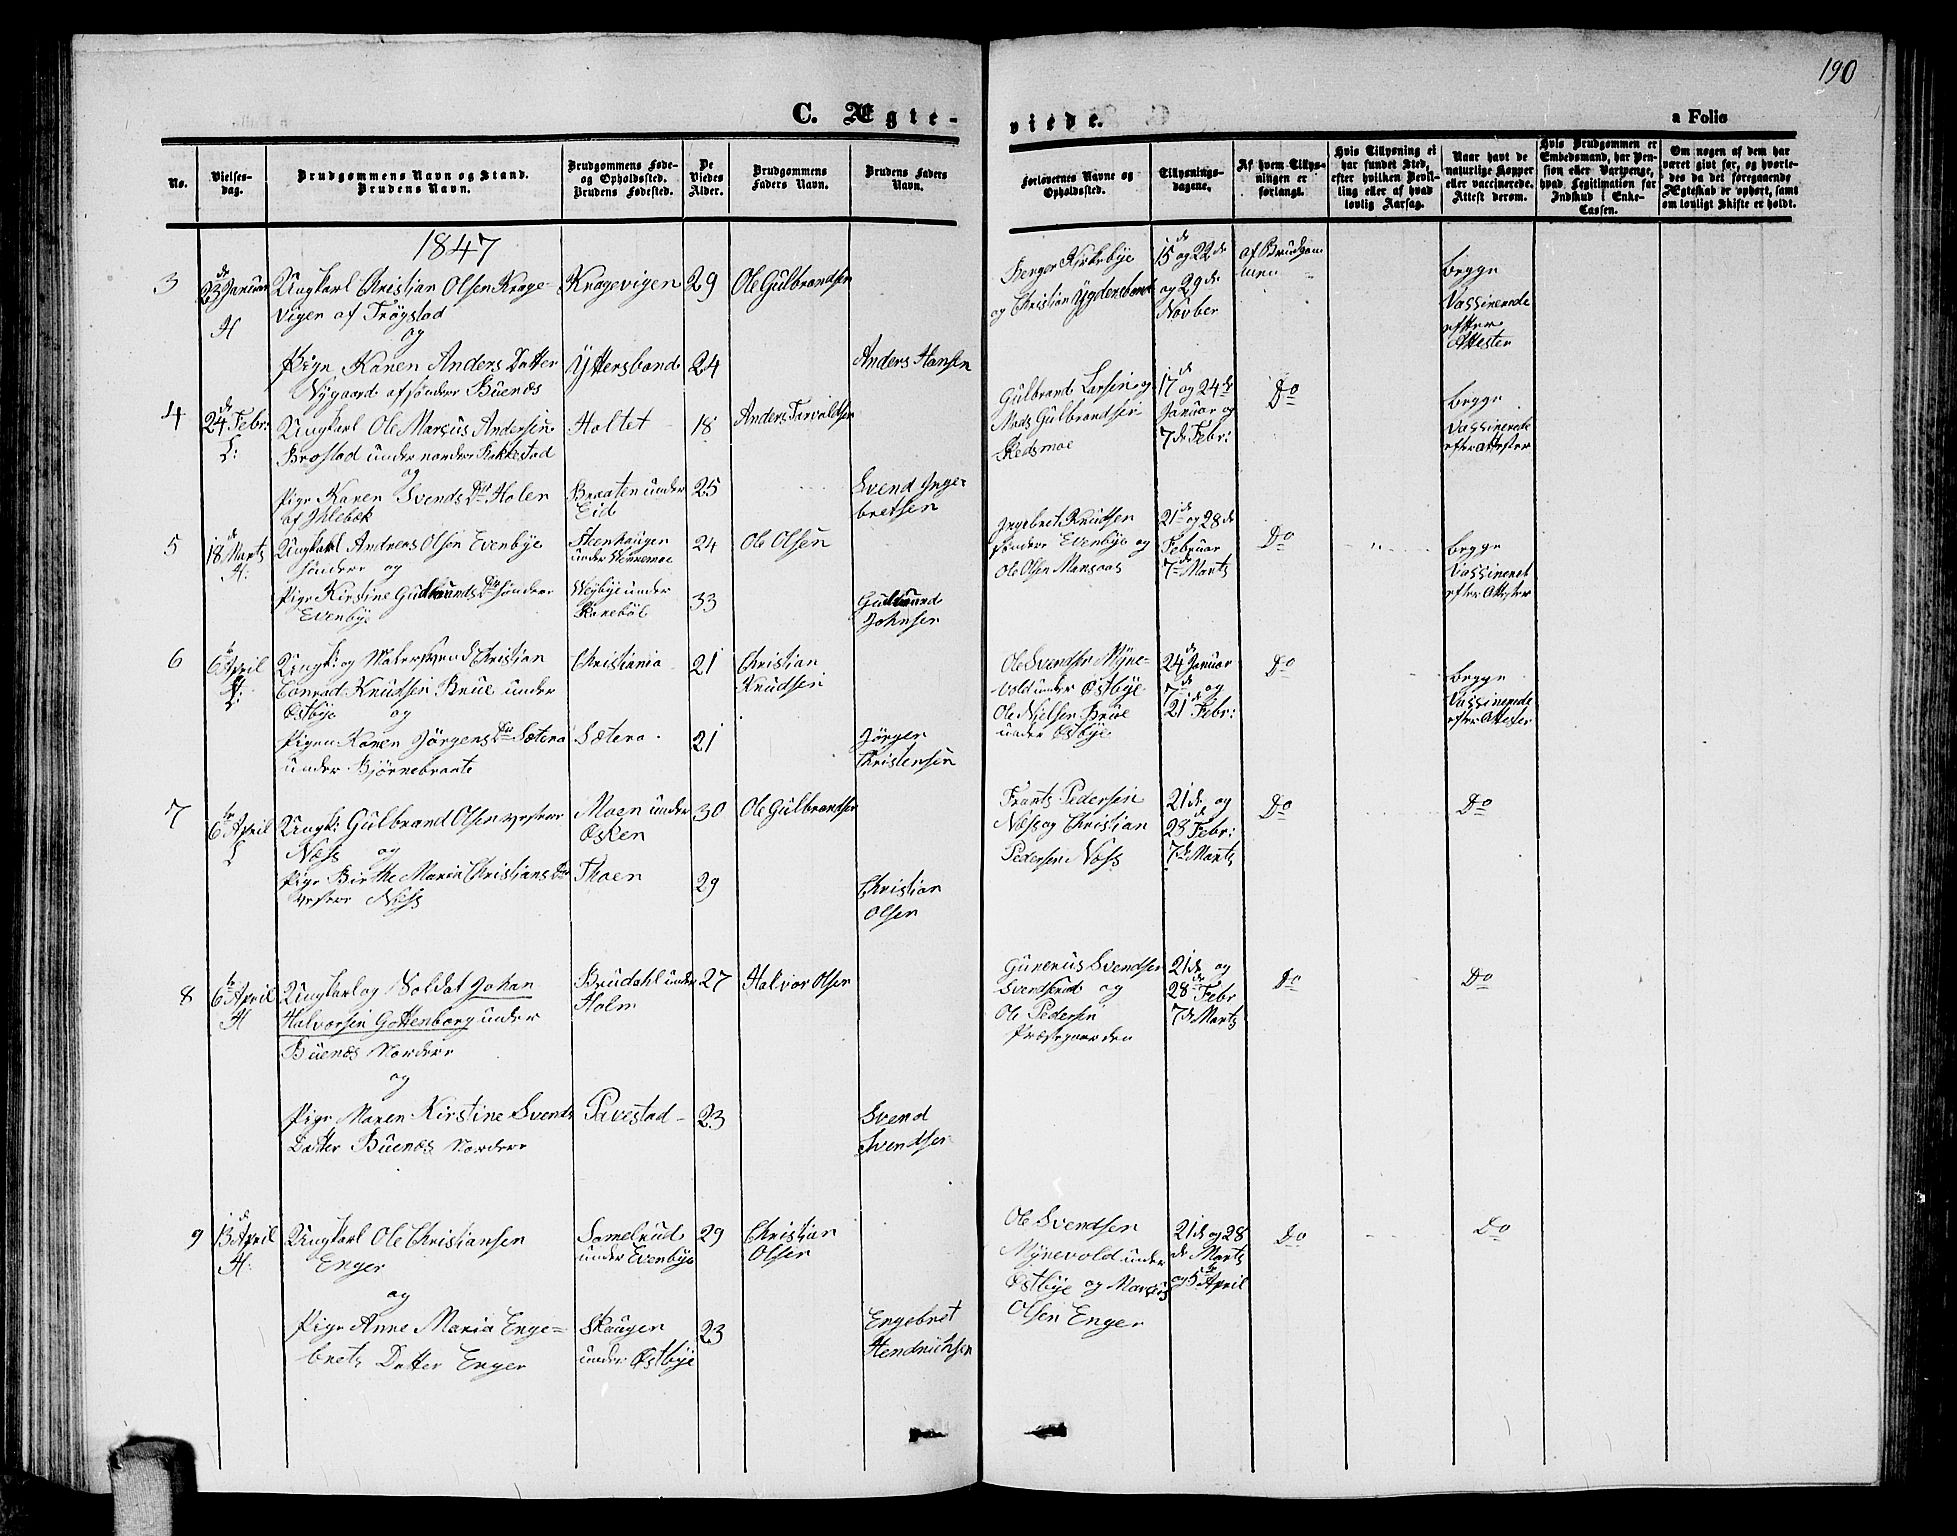 190
C. Ægte-
viede.
a Folio
No.
Vielses-
dag.
Brudgommens Navn og Stand.
Brudens Navn.
Brudgommens Føde-
og Opholdssted.
Brudens Fødested.
De
Viedes
Alder.
Brudgommens
Faders Navn.
Brudens Faders
Navn.
Forlovernes Navne og
Opholdssted.
Tillysnings-
dagene.
Af hvem Tillys-
ningen er
forlangt.
Hvis Tillysning ei
har fundet Sted,
efter hvilken Bevil-
ling eller af hvad
lovlig Aarsag.
Naar havt de
naturlige Kopper
eller vaccinerede.
Attest derom.
Hvis Brudgommen er
Embedsmand, har Pen-
sion eller Vartpenge,
hvad Legitimation for
Indskud i Enke-
Cassen.
Om nogen af dem har
været gift før, og hvorle-
des da det foregaaende
Ægteskab er ophørt, samt
om lovligt Skifte er holdt.
1847
3
23de Januar
H
Ungkarl Christian Olsen Krage-
vigen af Trøgstad
og
Pige Karen Anders Datter
Nygaard af søndre Buenæs
Kragevigen
Yttersbond
29
24
Ole Gulbrandsen
Anders Hansen
Kirkebye
og Christian
15de og 22de
og 29de
Novber
af Brudgom
men
begge
Vassinerede
efter
Attester
4
24de Febr:
L:
Ungkarl Ole Marcus Andersen
Brostad under nordre
og
Pige Karen Svends Dtr Holen
af Ihlebæk
Holtet
Braaten under
Eid
18
25
Anders Torvaldsen
Svend Inge-
bretsen
Gulbrand Larsen og
Mads Gulbrandsen
Skedsmoe
17de og 24de
Januar og
7de Febr:
Do
begge
Vassinerede
efter Attester
5
18de Marts
H:
Ungkarl Andreas Olsen Evenbye
søndre og
Pige Kirstine Gudbrands Dtr søndre
Evenbye
Steenhaugen
under
under
24
33
Ole Olsen
Gulbrand
Johnsen
Ingebret Knudsen
søndre Evenbye og
Ole Olsen Mansaas
21de og 28de
Februar
7de Marts
Do
begge
Vassineret
efter Attester
6
6te April
L:
Ungk: og Malersvend Christian
Conrad Knudsen Brue under
Østbye og
Pigen Karen Jörgens Dtr Sætera
under Bjørnebraate
Christiania
Sætera
21
21
Christian
Knudsen
Jörgen
Christensen
Ole Svendsen Myne-
vold under Østbye
Ole Nielsen Brue
under Østbye
24de Januar
7de og
21de Febr:
Do
begge
Vassinerede
efter Attester
7
6te April
L
Ungk: Gulbrand Olsen vestre
Næss og
Pige Birthe Maria Christians Dtr
vestre Næss
Moen under
Øsken
Thoen
30
29
Ole Gulbrandsen
Christian
Olsen
Frants Pedersen
Næss og Christian
Pedersen Næss
21de og
23 Febr:
7de Marts
Do
Do
8
6te April
H
Ungkarl og Soldat Johan
Halvorsen Gottenborg under
Buenæs Nordere
og
Pige Maren Kirstine Svends
Datter Buenæs Nordere
Brudahl under
Holm
Pavestad
27
23
Halvor Olsen
Svend
Svendsen
Gunerus Svendsen
og
Ole Pedersen
Præstegaarden
21de og
28de Febr
7de Marts
Do
Do
9
13de April
H:
Ungkarl Ole Christiansen
Enger
og
Pige Anne Maria Enge-
brets Datter Enger
Somelrud
under Evenbye
Skaugen
under Østbye
29
23
Christian
Olsen
Engebret
Hendrichsen
Ole Svendsen
Mynevold under
Østbye og Marcus
Olsen Enger
21de og 28
de Marts
og 5te April
Do
Do